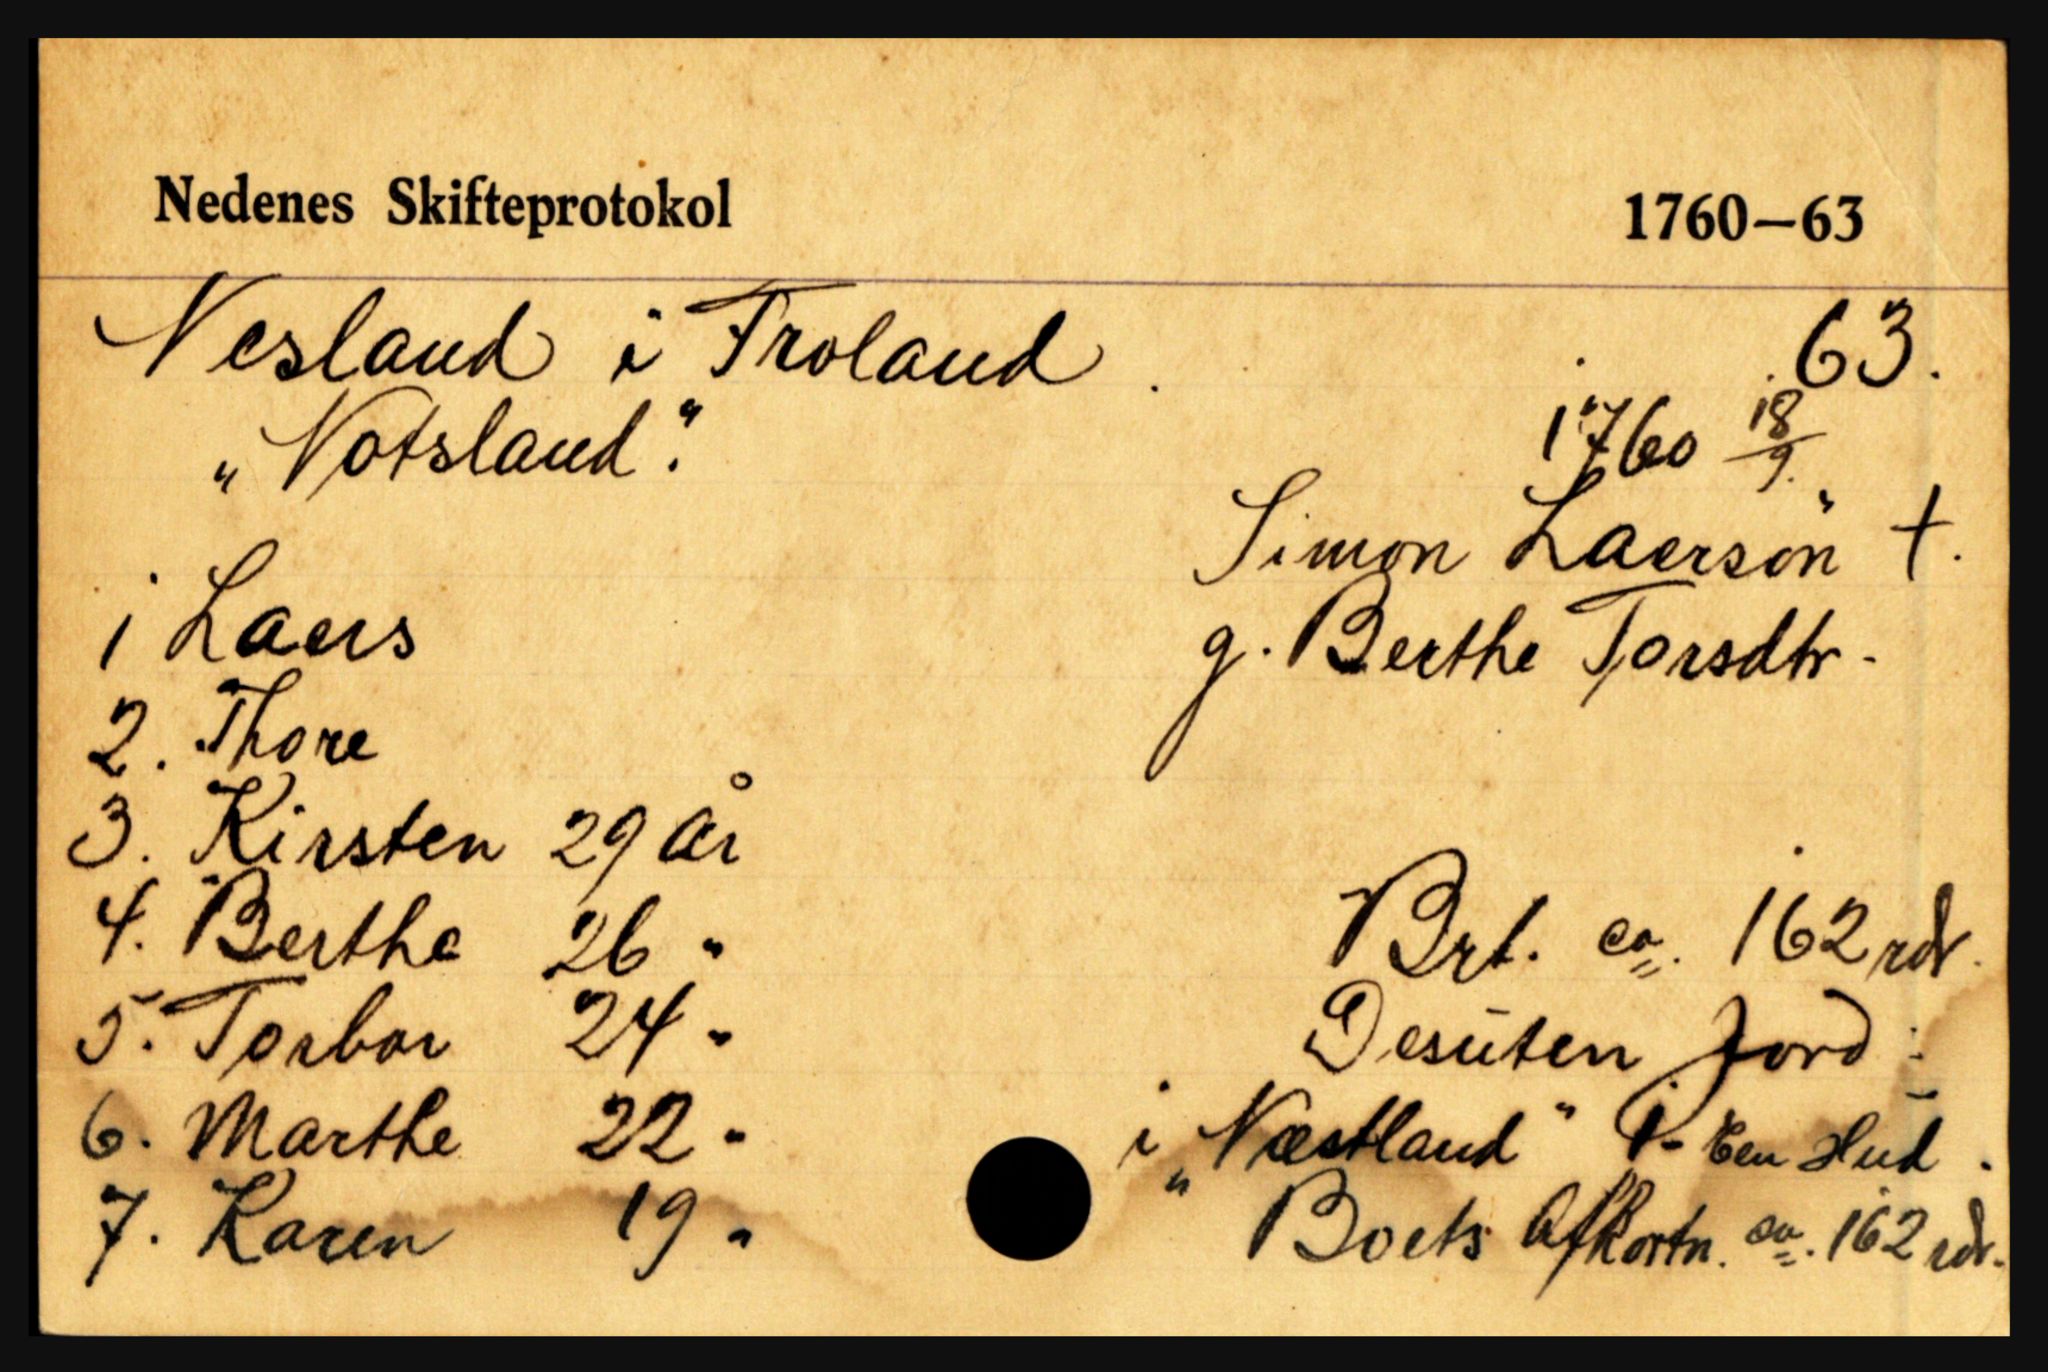 Nedenes Skifteprotokol 1760–63
Nesland i Froland 63.
„Notsland".
1760 18/9.
Simon Laersön †.
g. Berthe Torsdtr.
1 Laers
2. Thore
3. Kirsten 29 år
4. Berthe 26 "
5. Torbor 24 "
6. Marthe 22 "
7. Karen 19 "
Brt. ca. 162 rdr.
Desuten Jord:
i „Næstland" 1- Een Hud.
Boets Afkortn. ca. 162 rdr.